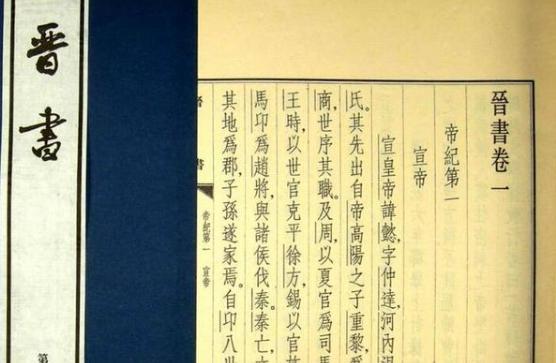 晉書
第
晉書卷一
帝紀第一
宣帝
宣皇帝諱懿,字仲達,河內
氏。其先出自帝高陽之子重黎,
商,世序其職。及周,以夏官爲司
王時,以世官克平徐方,錫以官
馬卬爲趙將,與諸侯伐秦。秦亡,
其地爲郡,子孫遂家焉。自卬八
書
帝紀第一 宣帝